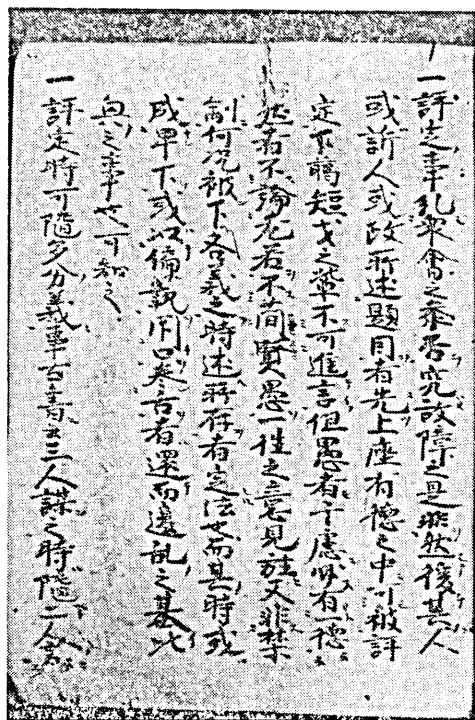 一評定事糺衆會之參否究故障之是非然後其人
或訴人或政所述題目者先上座有德之中可被評
定下﨟短才之輩不可進言但愚者千慮必有一德
然者不論尤若不簡賢愚一往之意見旁又非禁
制何况被下各義之時述所存者定法也而其時或
成卑下或以偏執閇口卷舌者還而違乱之基比
興之事也可知之
一評定時可隨多分義事古書云三人謀之時隨二人言